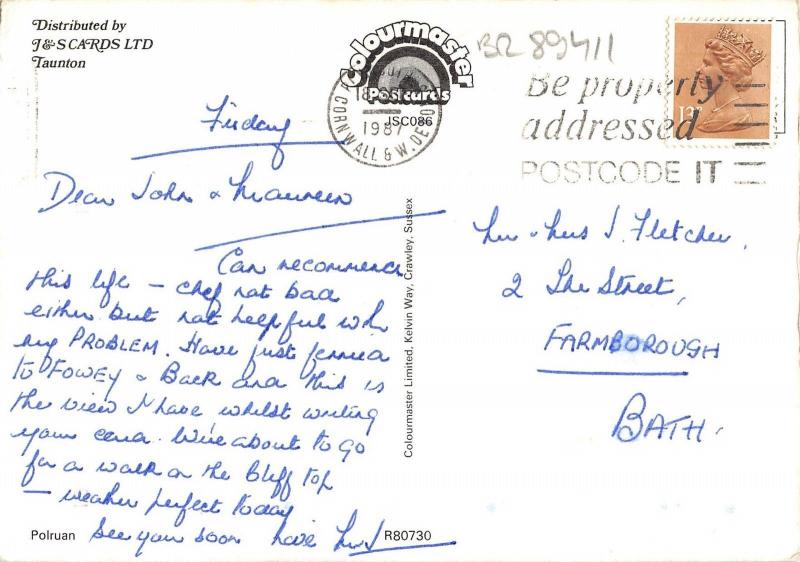 Distributed by
J&S CARDS LTD
Taunton
Colourmaster
Postcards
JSC086
BR 89411
18
1987
CORNWALL & W. DEVON
Be properly
addressed
POSTCODE IT
13P
Friday
Dear John & Maureen
Can recommend
this life – chef not bad
either but not helpful with
my PROBLEM. Have just ferried
to FOWEY & Back and this is
the view I have whilst writing
your card. We're about to go
for a walk on the Cliff top
– weather perfect today
See you soon love
Mr & Mrs J. Fletcher,
2 The Street,
FARMBOROUGH
BATH.
Colourmaster Limited, Kelvin Way, Crawley, Sussex
Polruan
R80730